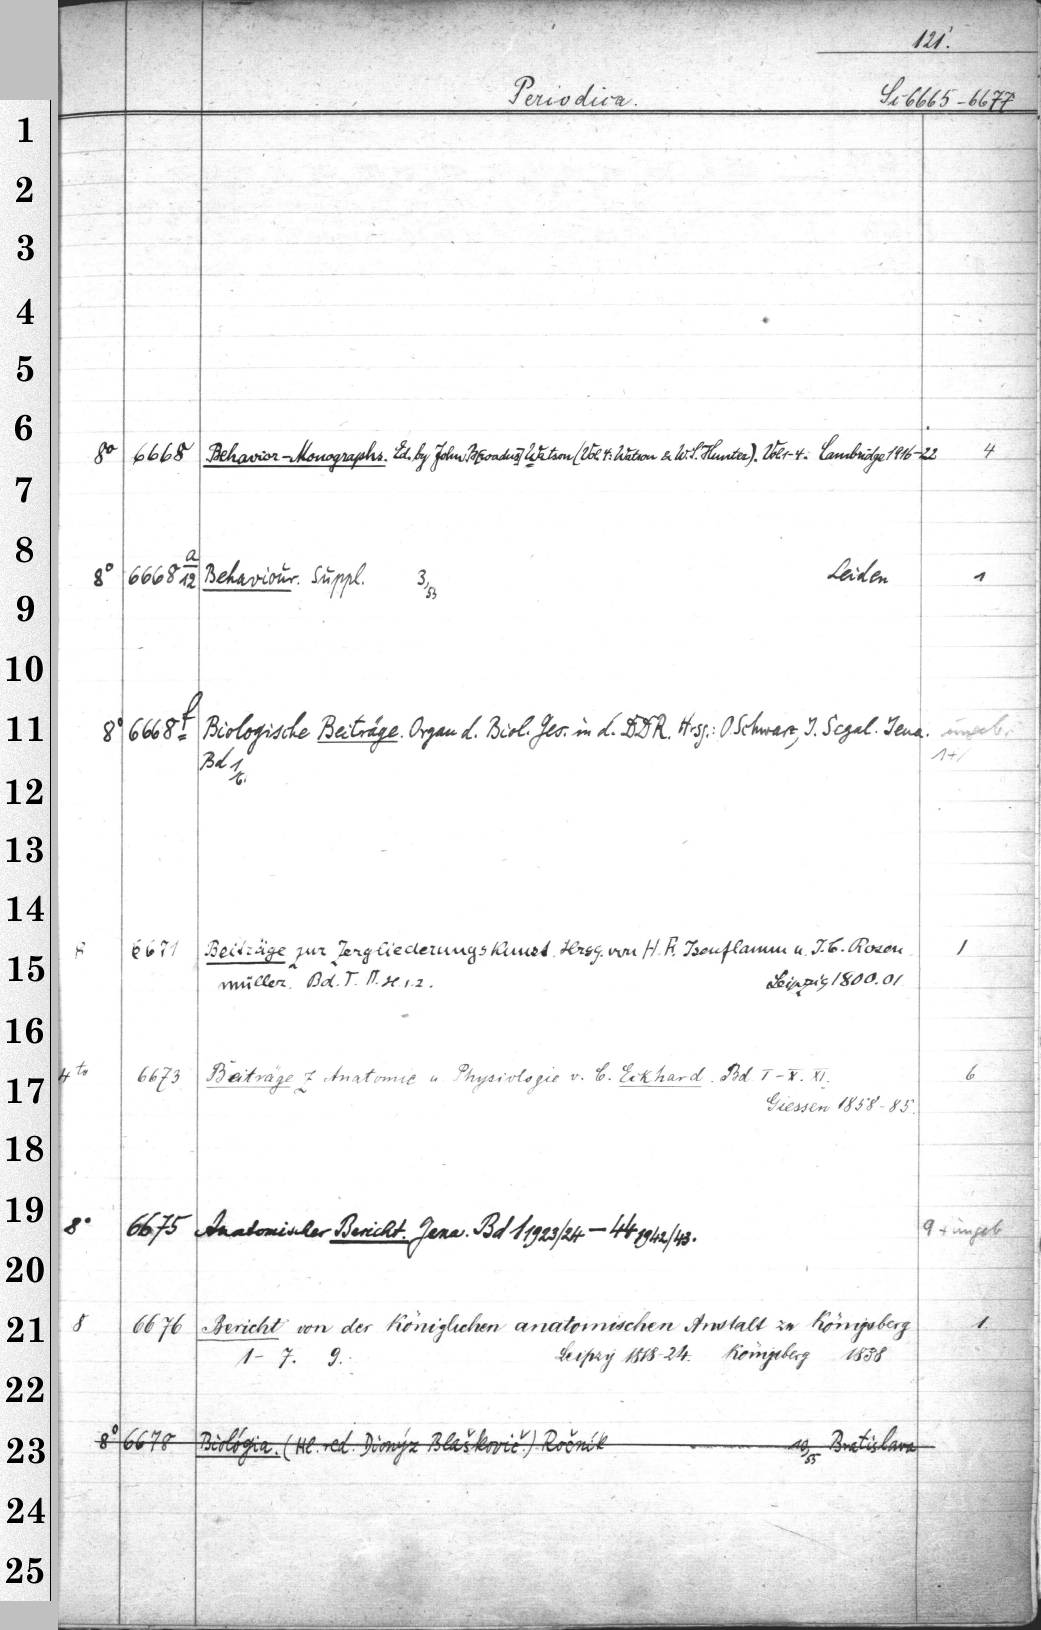 121.
Periodica. Si 6665-6677
1
2
3
4
5
6
8° 6668 Behavior-Monographs. Ed. by John B[roadus] Watson (Vol. 4: Watson & W. S. Hunter). Vol. 1-4. Cambridge 1916-22 4
7
8
8° 6668 a/12 Behaviour. Suppl. 3,53 Leiden 1
9
10
11 8° 6668 f Biologische Beiträge. Organ d. Biol. Ges. in d. DDR. Hrsg.: O Schwarz, J. Segal. Jena.
Bd 1
12
13
14
6671 Beiträge zur Zergliederungskunst. Hrsg. von H. F. Isenflamm u. J. C. Rosen 1
15 müller. Bd. I. II. H 1. 2. Leipzig 1800. 01
16
4to 6673 Beiträge z Anatomie u Physiologie v. C. Eckhard. Bd I-X. XI. 6
17 Giessen 1858-85.
18
19
8° 6675 Anatomischer Bericht. Jena. Bd 1 1923/24 - 44 1942/43. 9 + ungeb
20
21 8 6676 Bericht von der Königlichen anatomischen Anstalt zu Königsberg 1.
1- 7. 9. Leipzig 1818-24. Königsberg 1838
22
23 8° 6678 Biológia. (Hl. red. Dionýz Blaškovič.) Ročník 10,55 Bratislava
24
25